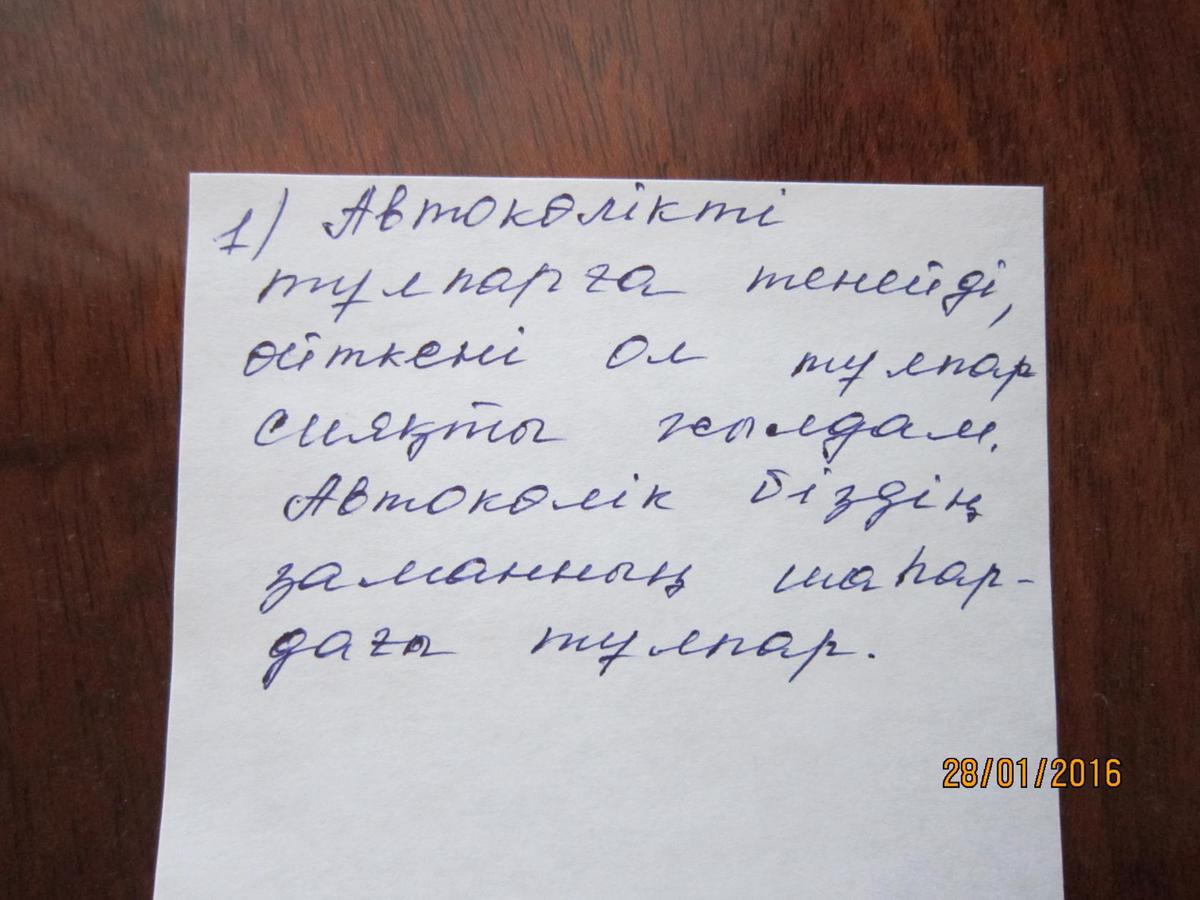 1) Автокөлікті
тұлпарға тенейді,
өйткені ол тұлпар
сияқты жылдам.
Автокөлік біздің
заманның шаһар-
дағы тұлпар.
28/01/2016